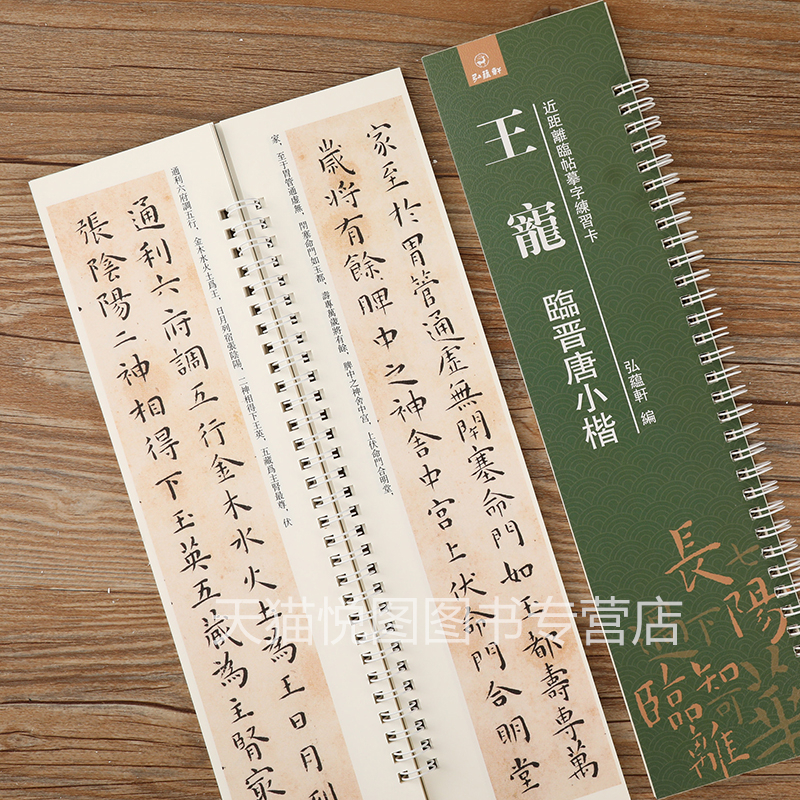 家至於胃管通虛無閇塞命門如玉都壽專萬
歲將有餘脾中之神舍中宮上伏命門合明堂
家、至于胃管通虛無、閇塞命門如玉都、壽專萬歲將有餘、脾中之神舍中宮、上伏命門合明堂、
通利六府調五行、金木水火土爲王、日月列宿張陰陽、二神相得下玉英、五藏爲主腎最尊、伏
通利六府調五行金木水火土為王日月列
張陰陽二神相得下玉英五藏為主腎冣
弘蘊軒
近距離臨帖摹字練習卡
王寵
臨晋唐小楷
弘蘊軒 編
長
七
陽
下
臨
知
可
離
華
天猫悦图图书专营店